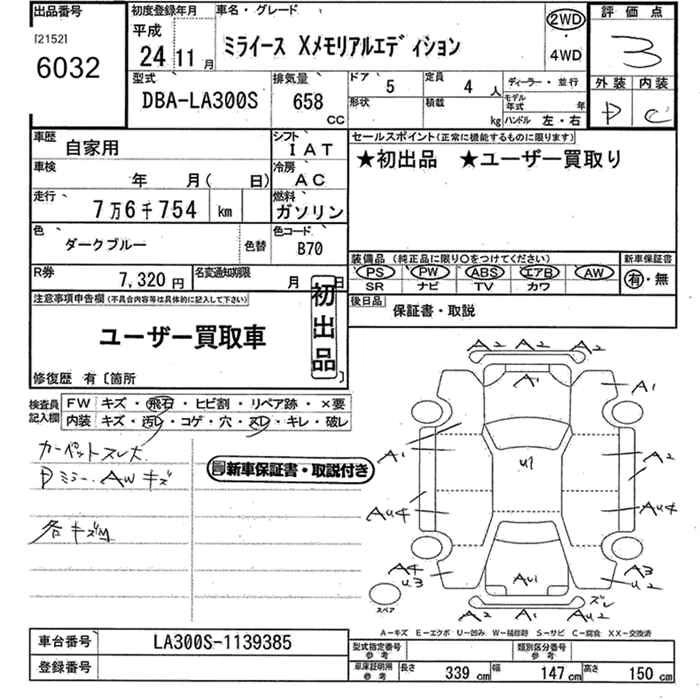 出品番号
[2152]
6032
初度登録年月
平成
24 11 月
車名・グレード
ミライース Xメモリアルエディション
2WD
・
4WD
評価点
3
外装 内装
D C
型式
DBA-LA300S
排気量
658
CC
ドア 5
定員 4 人
形状
積載 kg
ディーラー・並行
モデル年式 年
ハンドル 左・右
車歴
自家用
シフト
IAT
車検
年 月( 日)
冷房
AC
走行
7万6千754 km
燃料
ガソリン
色
ダークブルー
色替
色コード
B70
R券
7,320 円
名変通知期限
月 日
セールスポイント(正常に機能するものに限ります)
★初出品 ★ユーザー買取り
装備品 (純正品に限り○をつけてください)
PS PW ABS エアB AW
SR ナビ TV カワ
新車保証書
有・無
後日品
保証書・取説
注意事項申告欄(不具合内容等は具体的に記入して下さい)
ユーザー買取車
初出品
修復歴 有〔箇所
検査員記入欄
FW キズ・飛石・ヒビ割・リペア跡・×要
内装 キズ・汚レ・コゲ・穴・スレ・キレ・破レ
カーペットスレ大
Dミラー、AWキズ
新車保証書・取説付き
各キズM
A2 A2 A2
A1 A1
A1 U1 A2
AU4 AU4
A4 A3
U3 AU1 U2
スレ
A2 A1 AU2
スペア
A－キズ E－エクボ U－凹み W－補修跡 S－サビ C－腐食 XX－交換済
車台番号
LA300S-1139385
登録番号
型式指定番号 参考
類別区分番号 参考
車庫証明用 参考
長さ 339 cm 幅 147 cm 高さ 150 cm